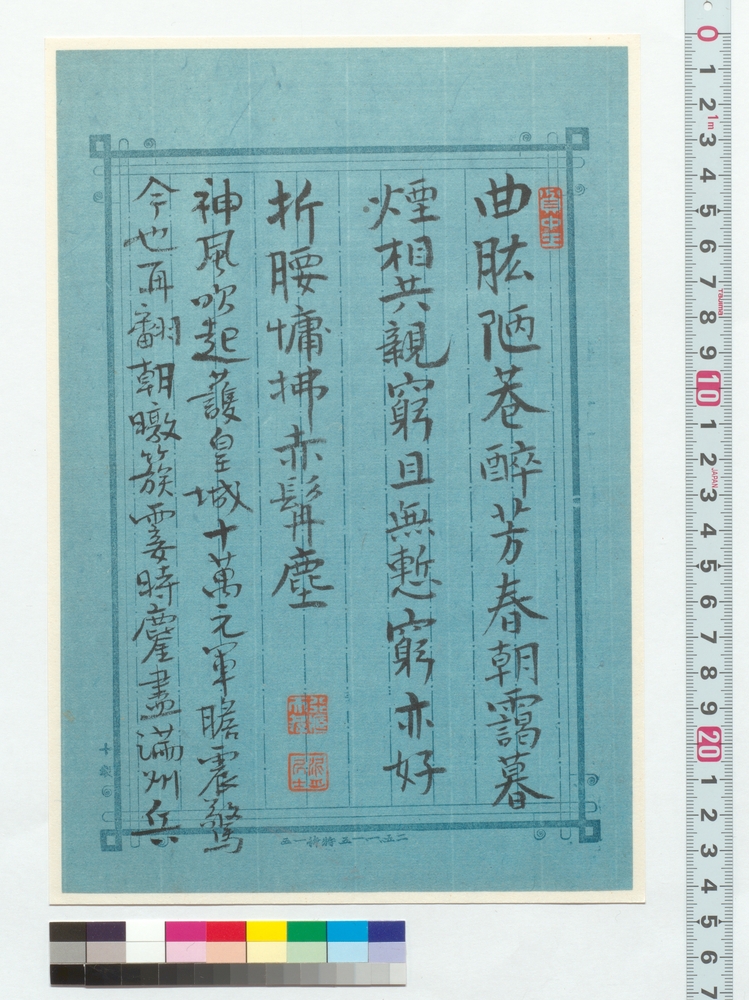 曲肱陋巷醉芳春朝靄暮
煙相共親窮且無慙窮亦好
折腰慵拂赤髯塵
神風吹起護皇城十萬元軍瞻震驚
今也再翻朝暾簇霎時鏖盡滿州兵
0 1 2 3 4 5 6 7 8 9 10 1 2 3 4 5 6 7 8 9 20 1 2 3 4 5 6 7
1m
JAPAN